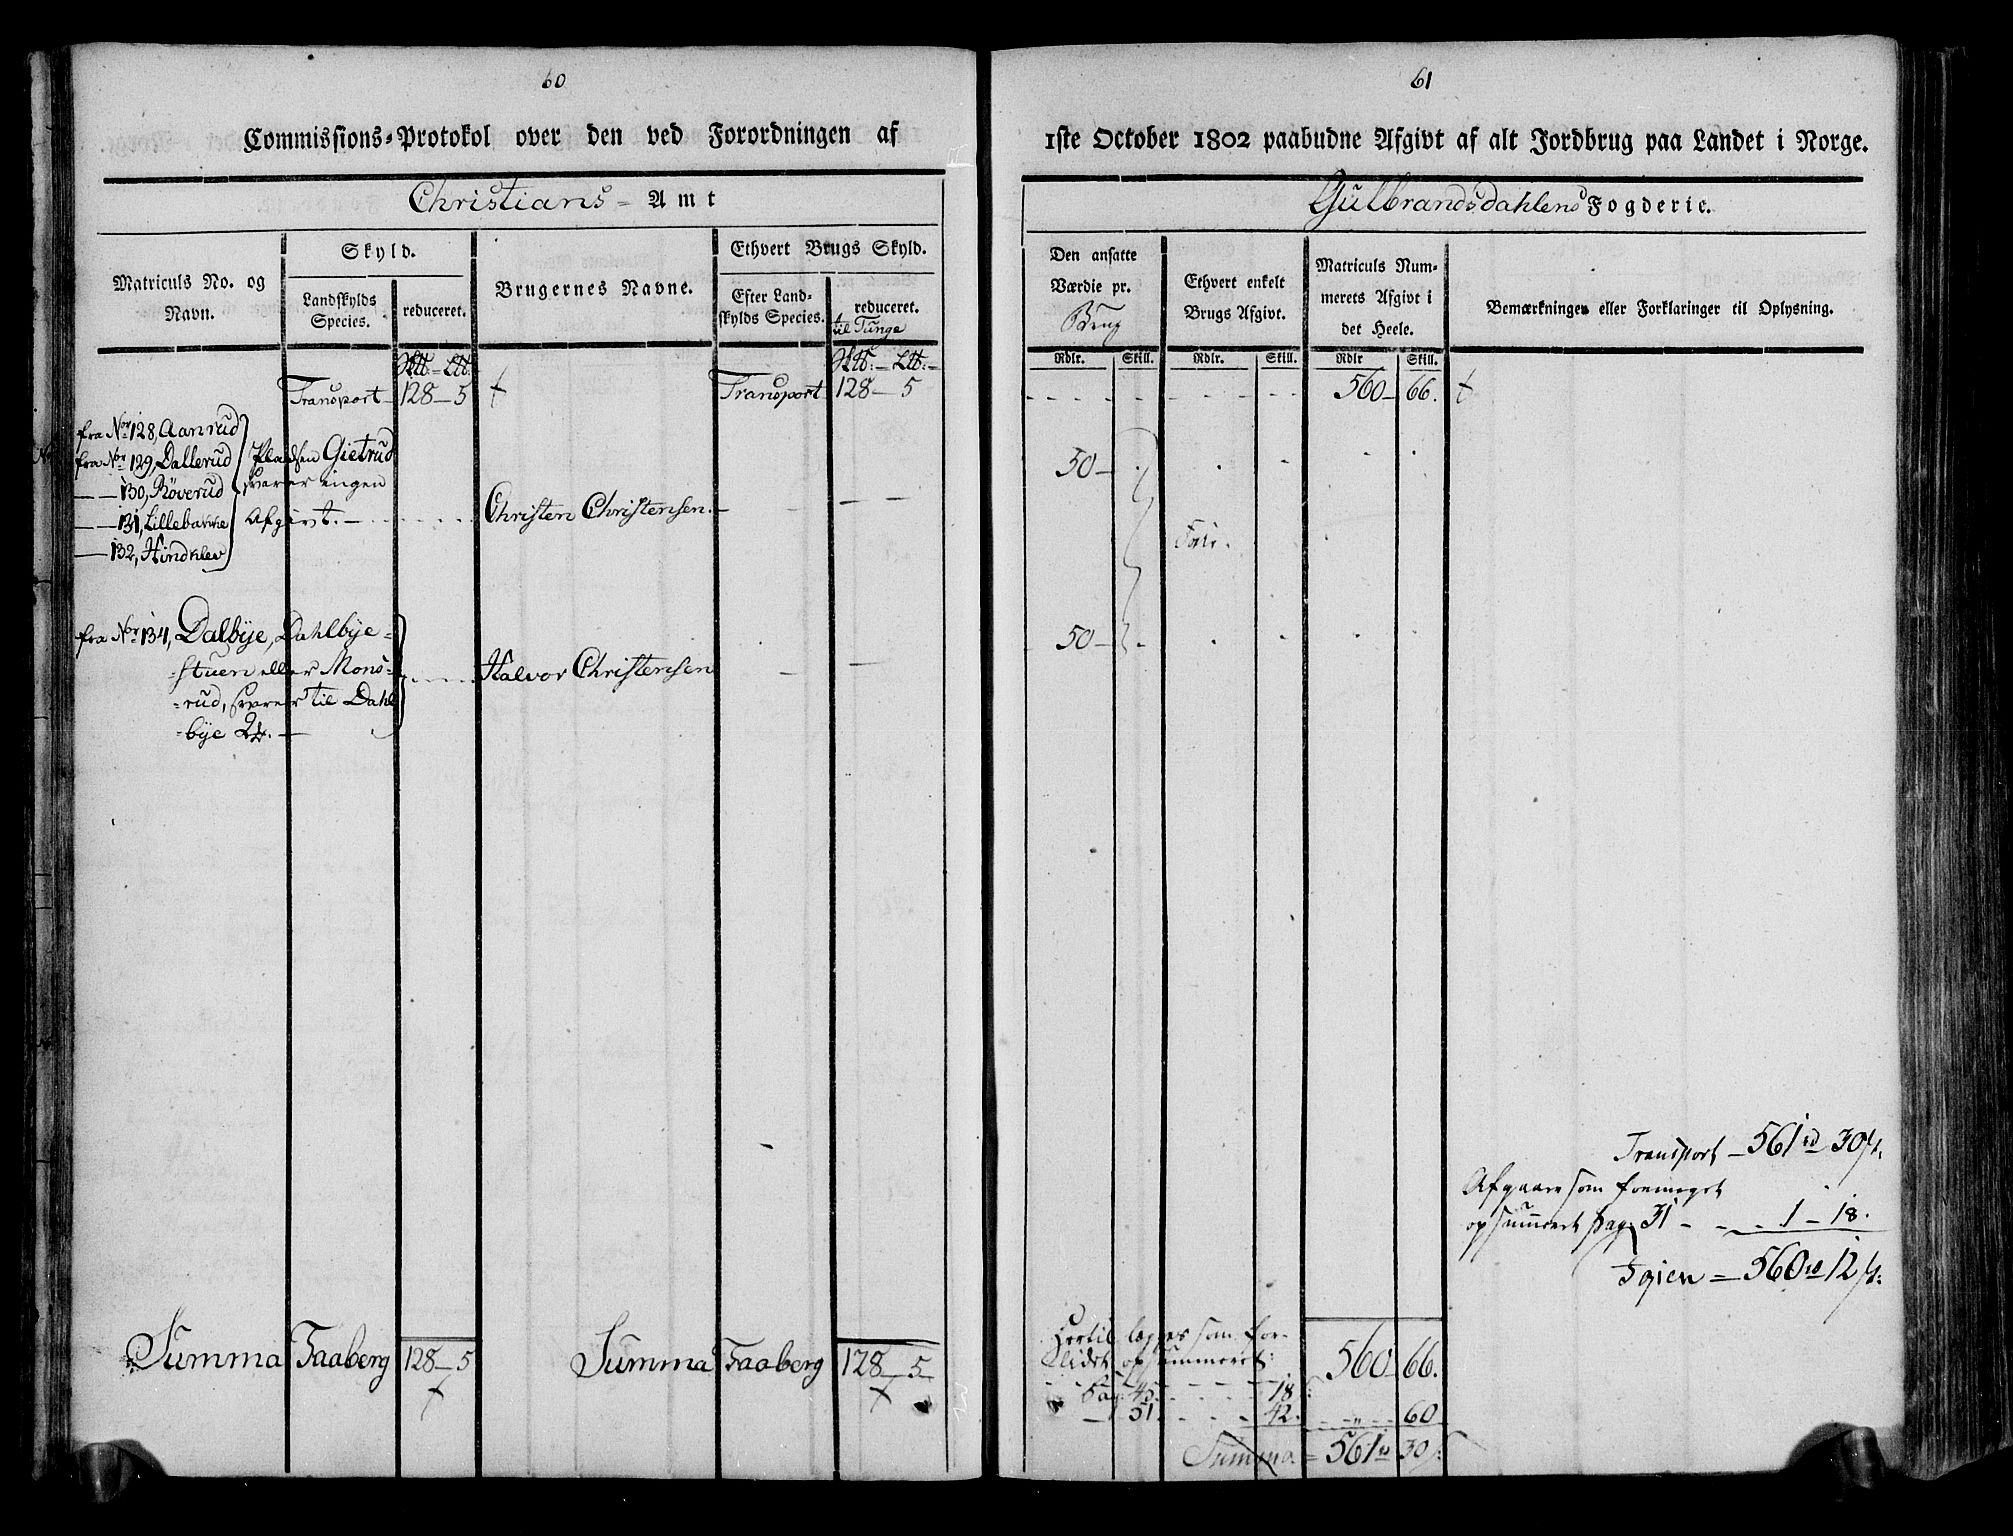 60
Commissions-Protokol over den ved Forordningen af
Christians - Amt
Matriculs No. og Navn.
Skyld.
Landskylds Species.
reduceret.
Brugernes Navne.
Ethvert Brugs Skyld.
Efter Landskylds Species.
reduceret.
til Tunge
Transport 128 - 5 Transport 128 - 5
fra Nor 128, Aanrud
fra Nor 129, Dallerud
— 130, Röverud
— 131, Lillebakke
— 132, Hindklev
Pladsen Gietrud
svarer ingen
Afgivt. - Christen Christensen. -
fra Nor 134, Dalbye, Dahlbye-
-stuen eller Mons-
-rud, svarer til Dahl
-bye
Halvor Christensen
Summa Faaberg 128 - 5 Summa Faaberg 128 - 5
61
1ste October 1802 paabudne Afgivt af alt Jordbrug paa Landet i Norge.
Gulbrandsdahlens Fogderie.
Den ansatte Værdie pr. Brug
Ethvert enkelt Brugs Afgivt.
Matriculs Nummerets Afgivt i det Heele.
Bemærkninger eller Forklaringer til Oplysning.
Rdlr. Skill. Rdlr. Skill. Rdlr Skill.
560 - 66.
50 -
50 -
Transport - 561 rd 30 s.
Afgaaer som formeget
opsummert pag: 31 - - - 1 - 18.
Igien = 560 rd 12 s.
Hertil lægges som for-
lidet opsummeret:
Pag: 45 - - - 18
— 51 - - - 42. - - 60
560 - 66.
Summa = 561 rd 30 s.